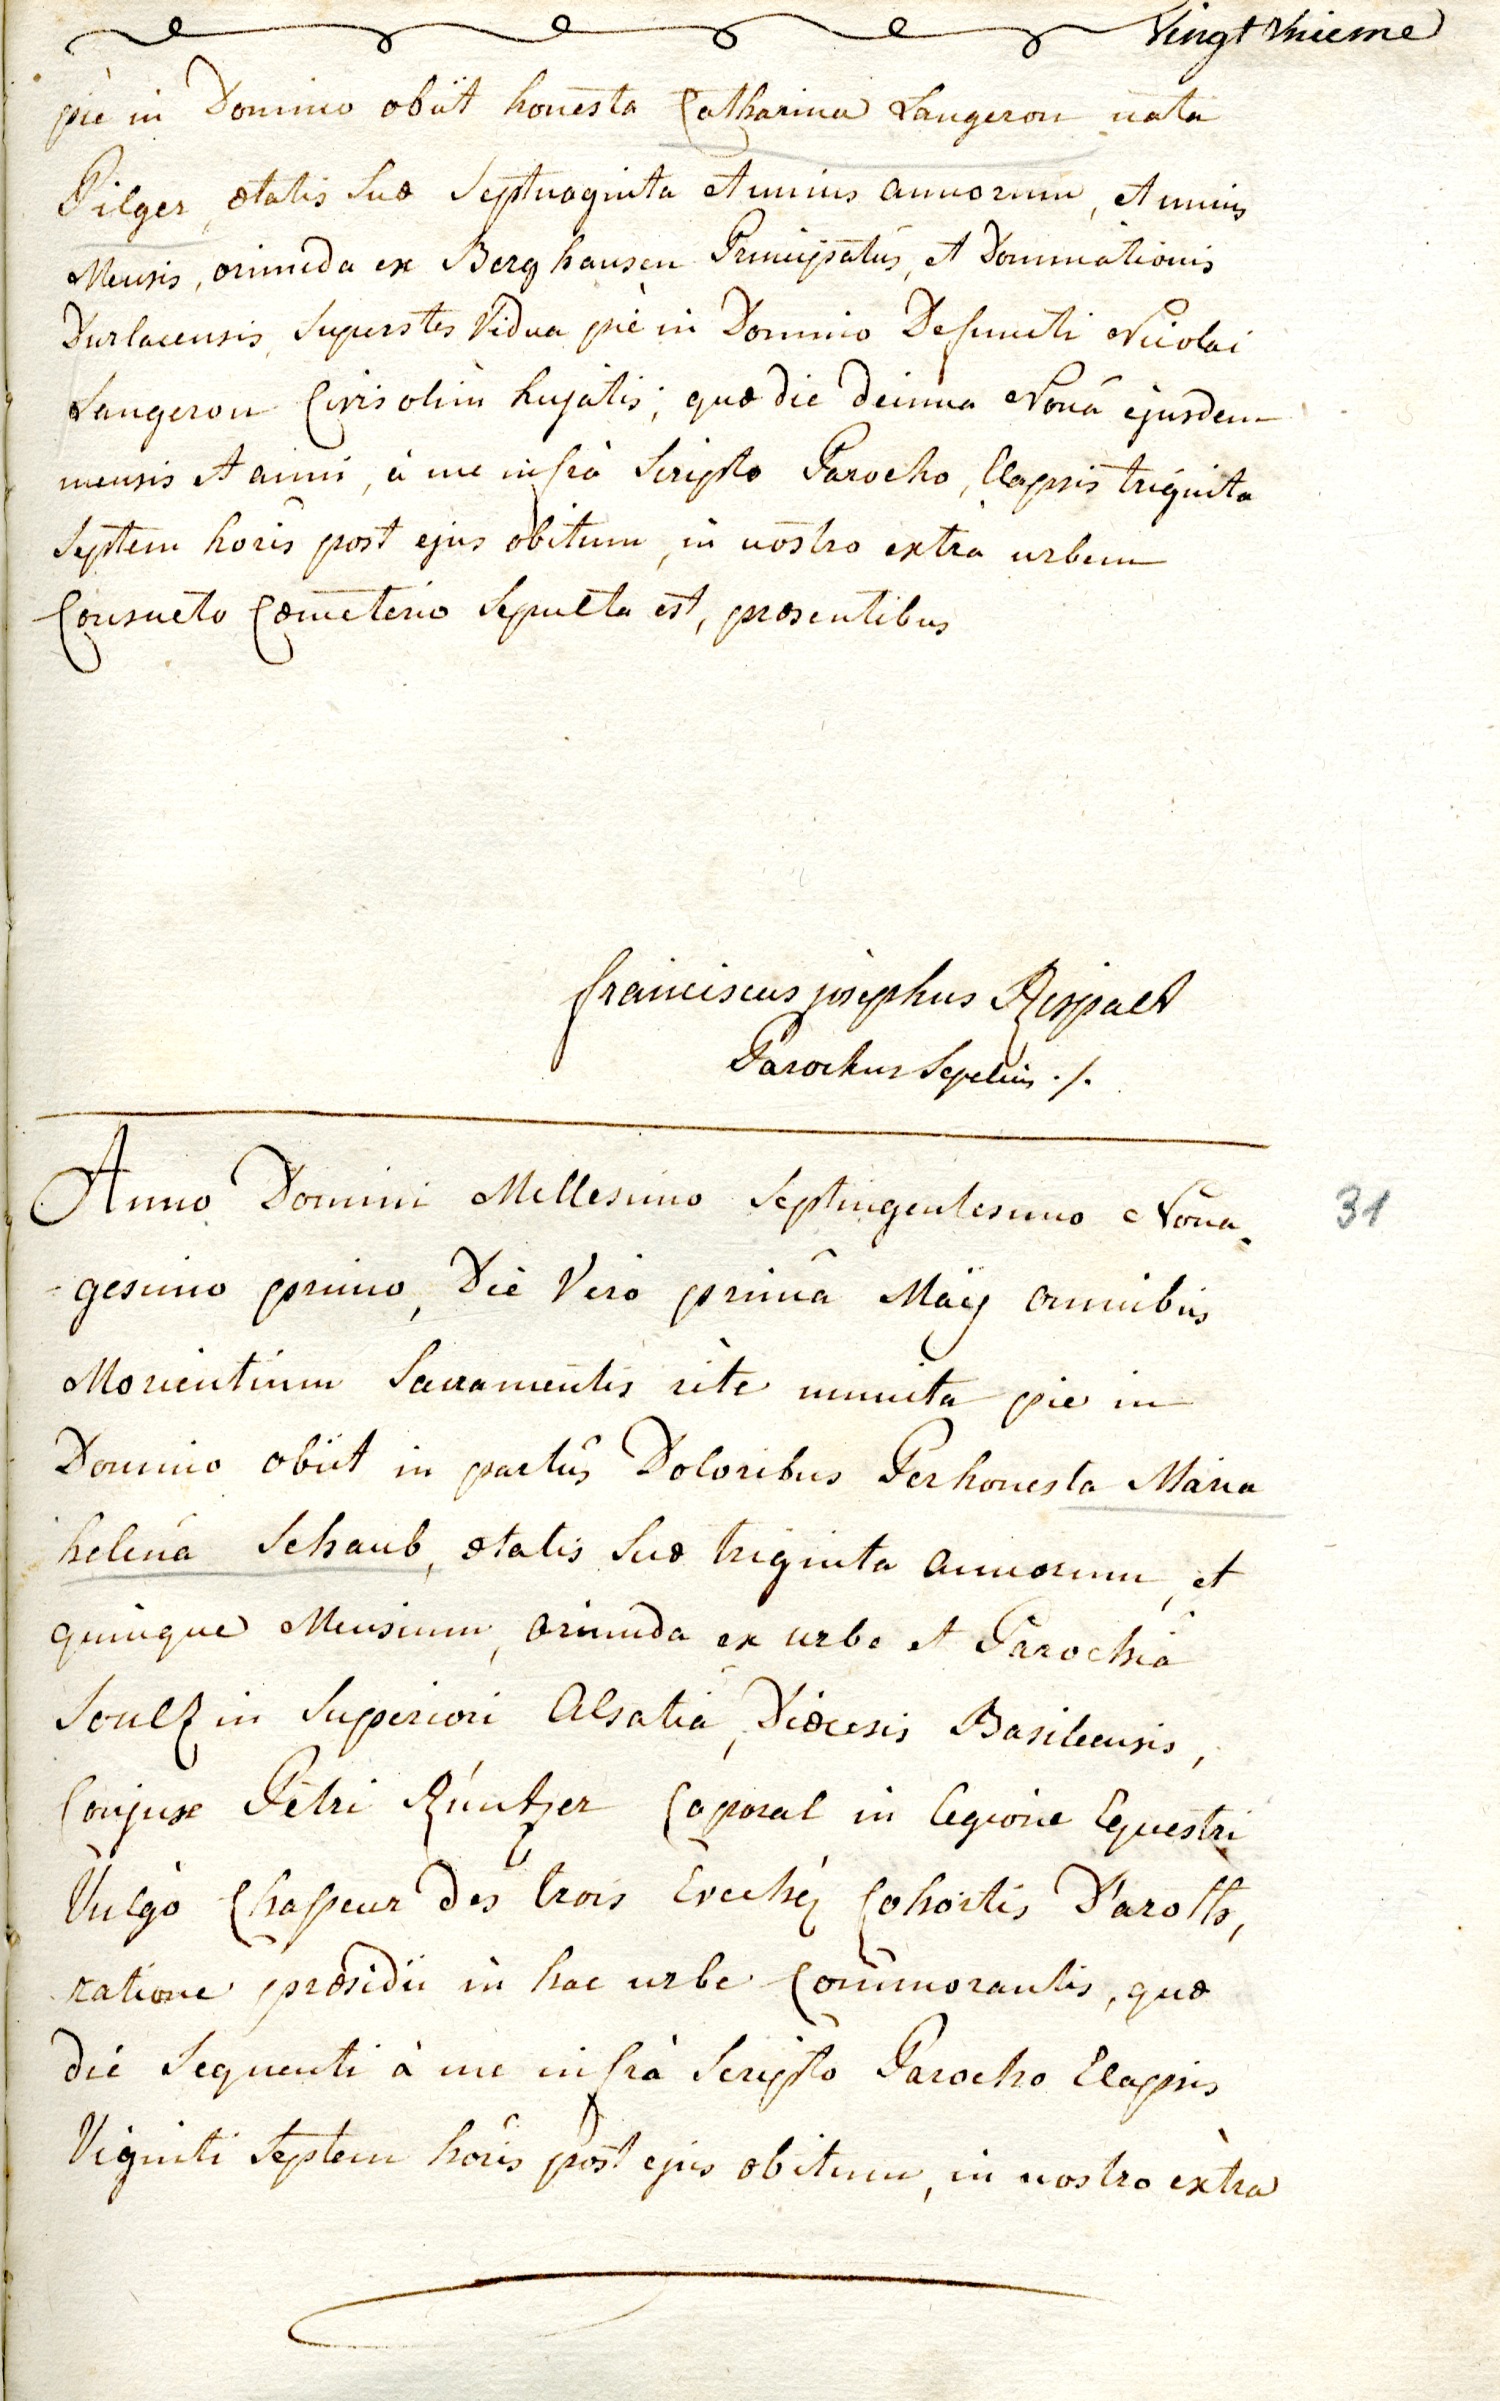 Vingt Unieme
piè in Domino obiit honesta Catharina Langeron nata
Pilger, ætatis suæ septuaginta et unius annorum, et unius
Mensis, oriunda ex Berghausen Principatûs, et Dominationis
Durlacensis, superstes Vidua piè in Domino Defuncti Nicolai
Langeron Civis olim hujatis; quæ die deinna Nonâ ejusdem
mensis et anni, à me infrà scripto Parocho, Elapsis triginta
septem horis post ejus obitum, in nostro extrà urbem
Consueto Cœmeterio sepulta est, præsentibus
franciscus josephus Rispalt
Parochus sepelius ./.
Anno Domini Millesimo septingentesimo Nona-
-gesimo primo, Die Vero primâ Maÿ omnibus
Morientium sacramentis rite munita pie in
Domino obiit in partûs Doloribus Perhonesta Maria
helena Schaub, ætatis suæ triginta annorum, et
quinque Mensium, oriunda ex urbe et Parochiâ
Soulz in superiori Alsatiâ, Diœcesis Basileensis,
Conjux Petri Küntzer Caporal in legione Equestri
Vulgò Chasseur des trois Evechéz Cohortis D'aroth,
ratione præsidii in hac urbe Commorantis, quæ
die sequenti à me infrà scripto Parocho Elapsis
Viginti septem horis post ejus obitum, in nostro extra
31